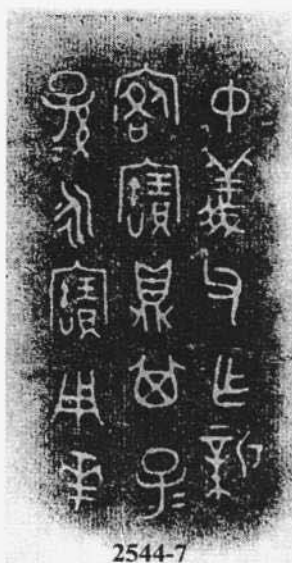 中義父乍新
客寶鼎其子＝
孫永寶用華
2544-7